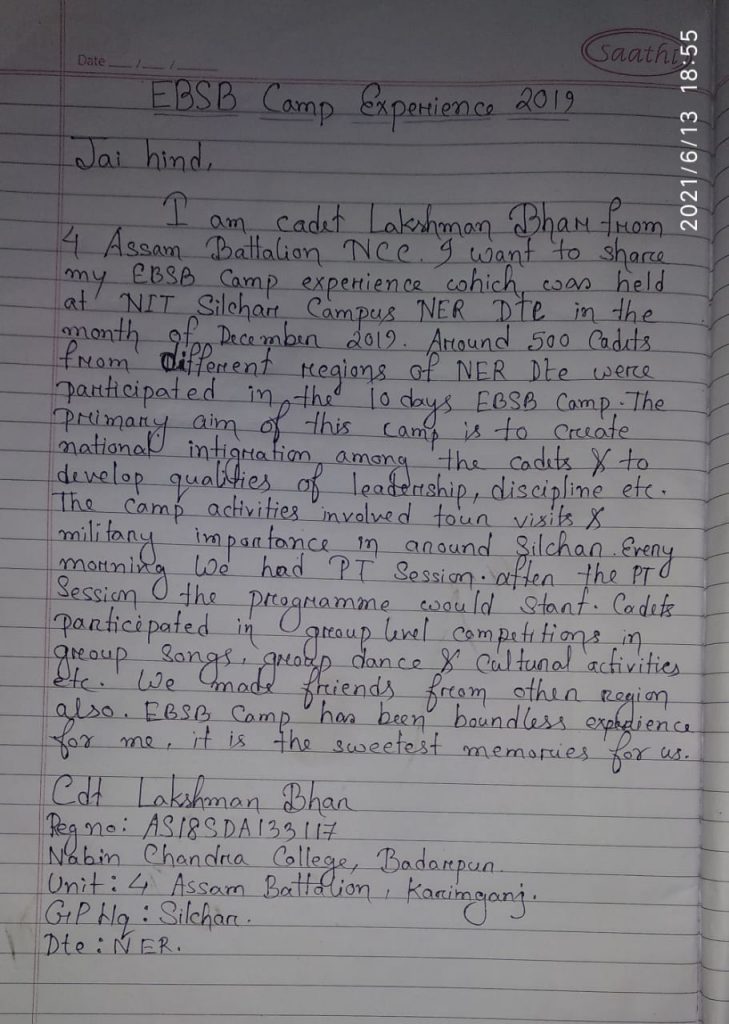 Date __/__/__
Saathi
2021/6/13 18:55
EBSB Camp Experience 2019
Jai hind,
I am cadet Lakshman Bhar from
4 Assam Battalion NCC. I want to share
my EBSB Camp experience which was held
at NIT Silchar Campus NER Dte in the
month of December 2019. Around 500 Cadets
from different regions of NER Dte were
participated in the 10 days EBSB Camp. The
primary aim of this camp is to create
national intigration among the cadets & to
develop qualities of leadership, discipline etc.
The camp activities involved toun visits &
military importance in around Silchar. Every
morning We had PT Session. after the PT
Session the programme would start. Cadets
participated in group level competitions in
group songs, group dance & Cultural activities
etc. We made friends from other region
also. EBSB Camp has been boundless experience
for me, it is the sweetest memories for us.
Cdt Lakshman Bhar
Reg no: AS18SDA133117
Nabin Chandra College, Badarpur.
Unit: 4 Assam Battalion, Karimganj.
GP Hq: Silchar.
Dte: NER.